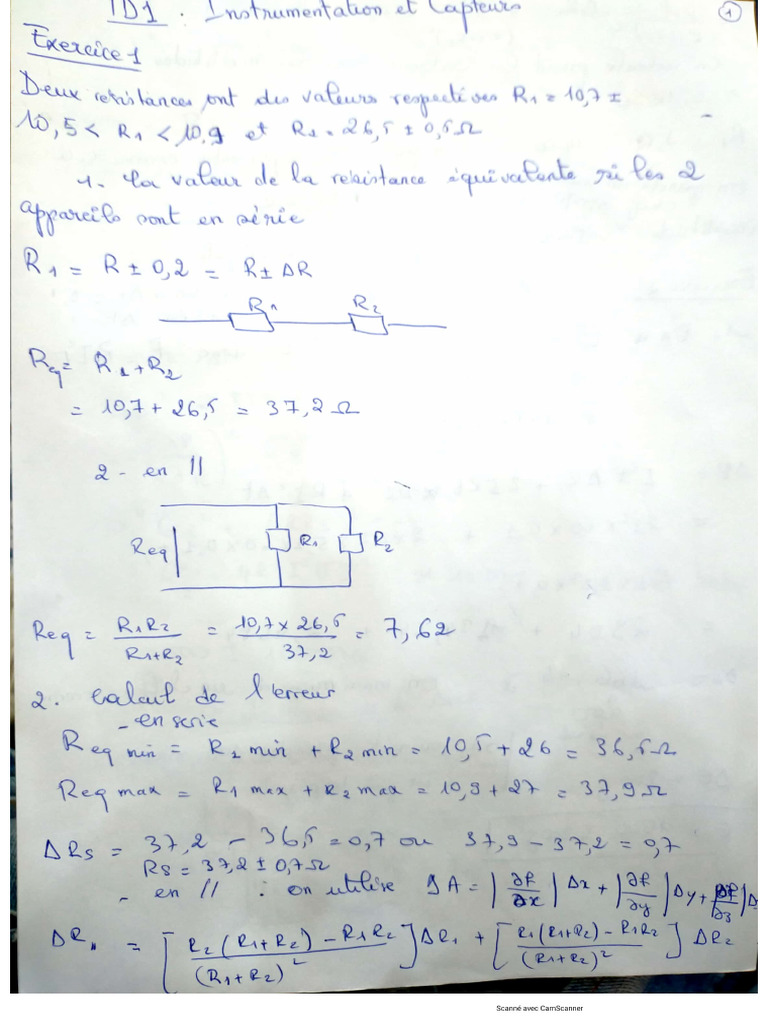 TD1 : Instrumentation et Capteurs
1
Exercice 1
Deux resistances ont des valeurs respectives R1 = 10,7 ±
10,5 < R1 < 10,9 et R2 = 26,5 ± 0,5 Ω
1. la valeur de la resistance équivalente si les 2
appareils sont en série
R1 = R ± 0,2 = R ± ΔR
R1 R2
Req = R1 + R2
= 10,7 + 26,5 = 37,2 Ω
2 - en //
Req R1 R2
Req = R1R2 / R1+R2 = 10,7 x 26,5 / 37,2 = 7,62
2. Calcul de l'erreur
- en serie
Req min = R1 min + R2 min = 10,5 + 26 = 36,5 Ω
Req max = R1 max + R2 max = 10,9 + 27 = 37,9 Ω
ΔRs = 37,2 - 36,5 = 0,7 ou 37,9 - 37,2 = 0,7
Rs = 37,2 ± 0,7 Ω
- en // : on utilise ΔA = |∂f/∂x| Δx + |∂f/∂y| Δy + |∂f/∂z| Δ
ΔR// = [R2(R1+R2) - R1R2 / (R1+R2)²] ΔR1 + [R1(R1+R2) - R1R2 / (R1+R2)²] ΔR2
Scanné avec CamScanner